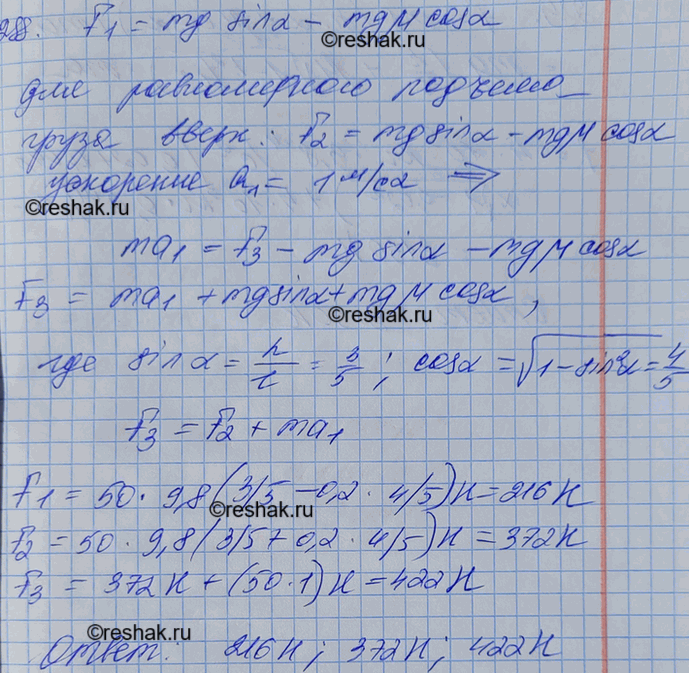 288. F₁ = mg sinα - mgμ cosα
©reshak.ru
для равномерного подъема
груза вверх: F₂ = mg sinα - mgμ cosα
ускорение a₁ = 1 м/с2 ⇒
©reshak.ru
ma₁ = F₃ - mg sinα - mgμ cosα
F₃ = ma₁ + mg sinα + mgμ cosα,
©reshak.ru
где sinα = h/l = 3/5; cosα = √(1 - sin²α) = 4/5
F₃ = F₂ + ma₁
F₁ = 50 · 9,8 (3/5 - 0,2 · 4/5) Н = 216 Н
F₂ = 50 · 9,8 (3/5 + 0,2 · 4/5) Н = 372 Н
F₃ = 372 Н + (50 · 1) Н = 422 Н
©reshak.ru
Ответ: 216 Н; 372 Н; 422 Н